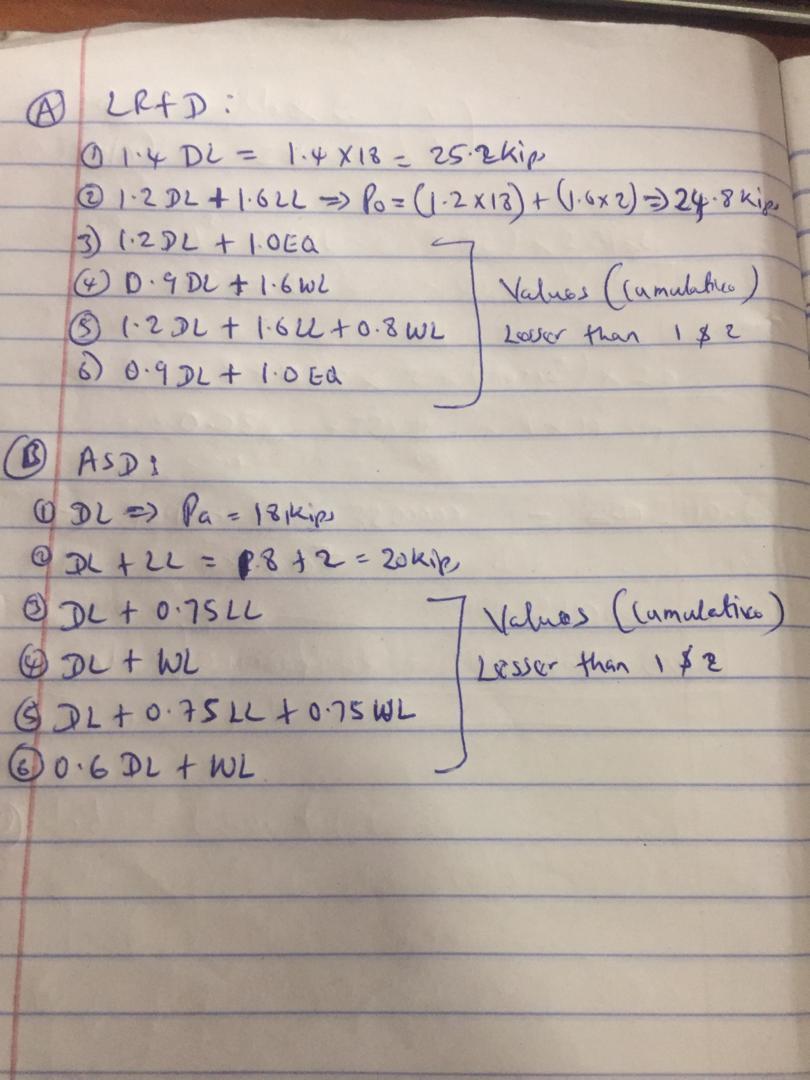 Ⓐ LRFD:
① 1.4 DL = 1.4 X 18 = 25.2 Kips
② 1.2 DL + 1.6 LL => Po = (1.2 x 18) + (1.6 x 2) => 24.8 Kips
3) 1.2 DL + 1.0 EQ
④ 0.9 DL + 1.6 WL
⑤ 1.2 DL + 1.6 LL + 0.8 WL
6) 0.9 DL + 1.0 EQ
Values (Cumulative)
Lesser than 1 & 2
Ⓑ ASD:
① DL => Pa = 18 kips
② DL + LL = 18 + 2 = 20 kips
③ DL + 0.75 LL
④ DL + WL
⑤ DL + 0.75 LL + 0.75 WL
⑥ 0.6 DL + WL
Values (Cumulative)
Lesser than 1 & 2